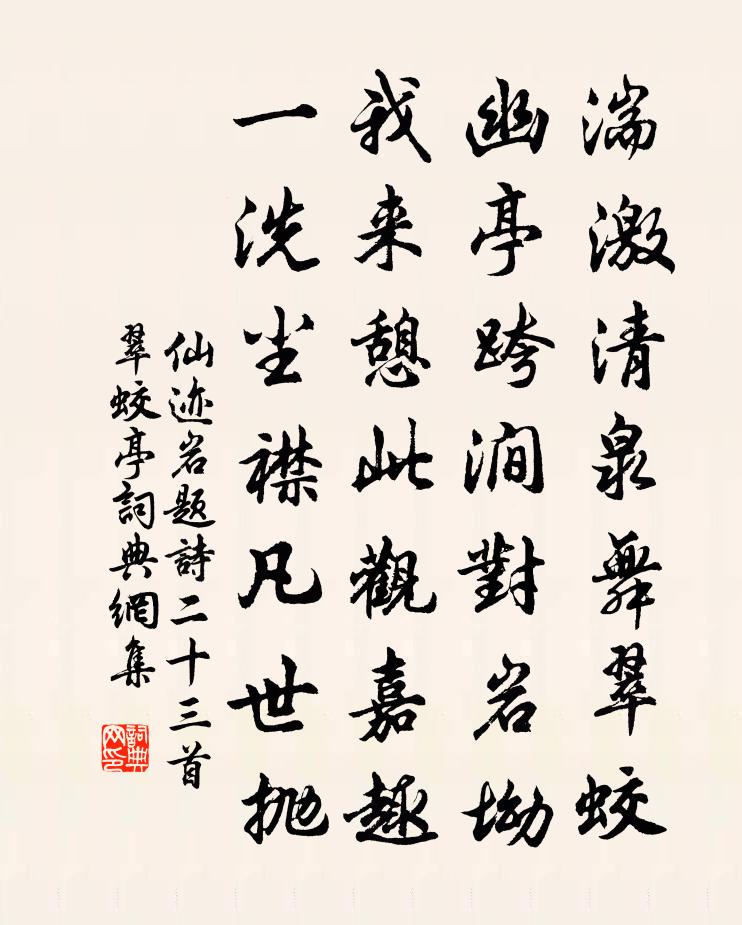 湍激清泉舞翠蛟
幽亭跨涧對岩坳
我来憩此觀嘉趣
一洗尘襟凡世抛
仙迹岩题詩二十三首
翠蛟亭詞典網集
詞典网印